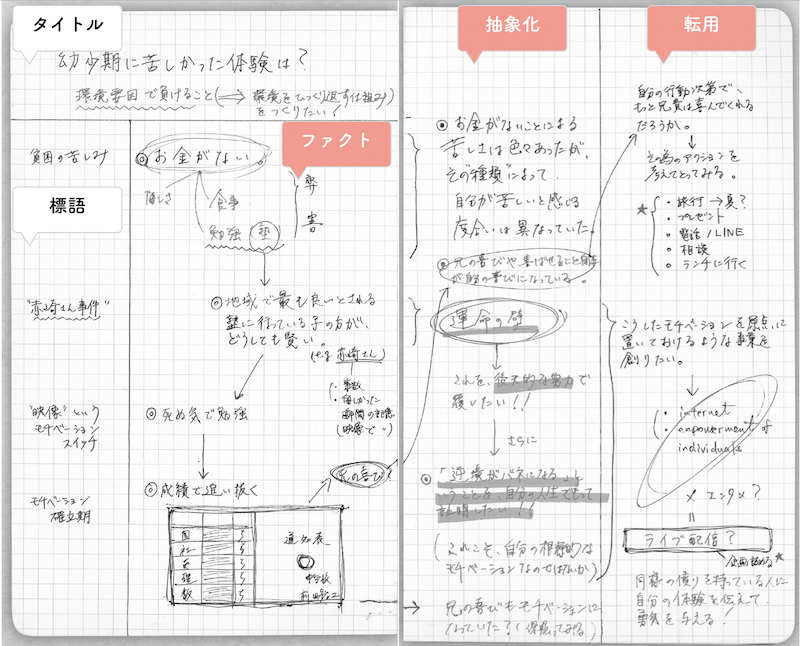 タイトル
幼少期に苦しかった体験は？
環境要因で負けること（⇒環境をひっくり返す仕組み）
をつくりたい！
標語
ファクト
貧困の苦しみ
◎お金がない。
悔しさ
食事
勉強 塾
弊
害
"赤崎さん事件"
◎地域で最も良いとされる
塾に行っている子の方が、
どうしても賢い。
(e.g. 赤崎さん)
・算数
・悔しかった
瞬間の記憶
(映像で 〃)
"映像"という
モチベーション
スイッチ
◎死ぬ気で勉強
◎成績で追い抜く
兄の喜び
モチベーション
確立期
国 5
社 5
英 5
理 5
数 5
通知表
中学校
抽象化
◎お金がないことによる
苦しさは色々あったが、
その"種類"によって
自分が苦しいと感じる
度合いは異なっていた。
◎兄の喜びや、喜ばせること自体
が自分の喜びになっている。
運命の壁
これを、後天的な努力で
覆したい！！
さらに
◎「逆境がバネになる」と
いうことを、自分の人生でもって
証明したい！！
（これこそ、自分の根源的な
モチベーションなのではないか）
→ 兄の喜びもモチベーションに
なっていた？（深掘ってみる）
転用
自分の行動次第で、
もっと兄貴は喜んでくれる
だろうか。
その為のアクションを
考えてとってみる。
★
・旅行→夏？
・プレゼント
・電話/LINE
・相談
・ランチに行く
こうしたモチベーションを原点に
置いておけるような事業を
創りたい。
・internet
・enpowerment of
individuals
× エンタメ？
=
ライブ配信？
企画詰める★
同様の憤りを持っている人に
自分の体験を伝えて、
勇気を与える！